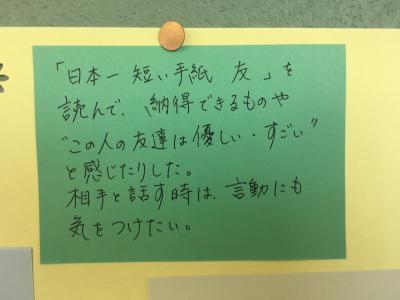 「日本一 短い手紙 友 」を
読んで、納得できるものや
"この人の友達は優しい・すごい"
と感じたりした。
相手と話す時は、言動にも
気をつけたい。